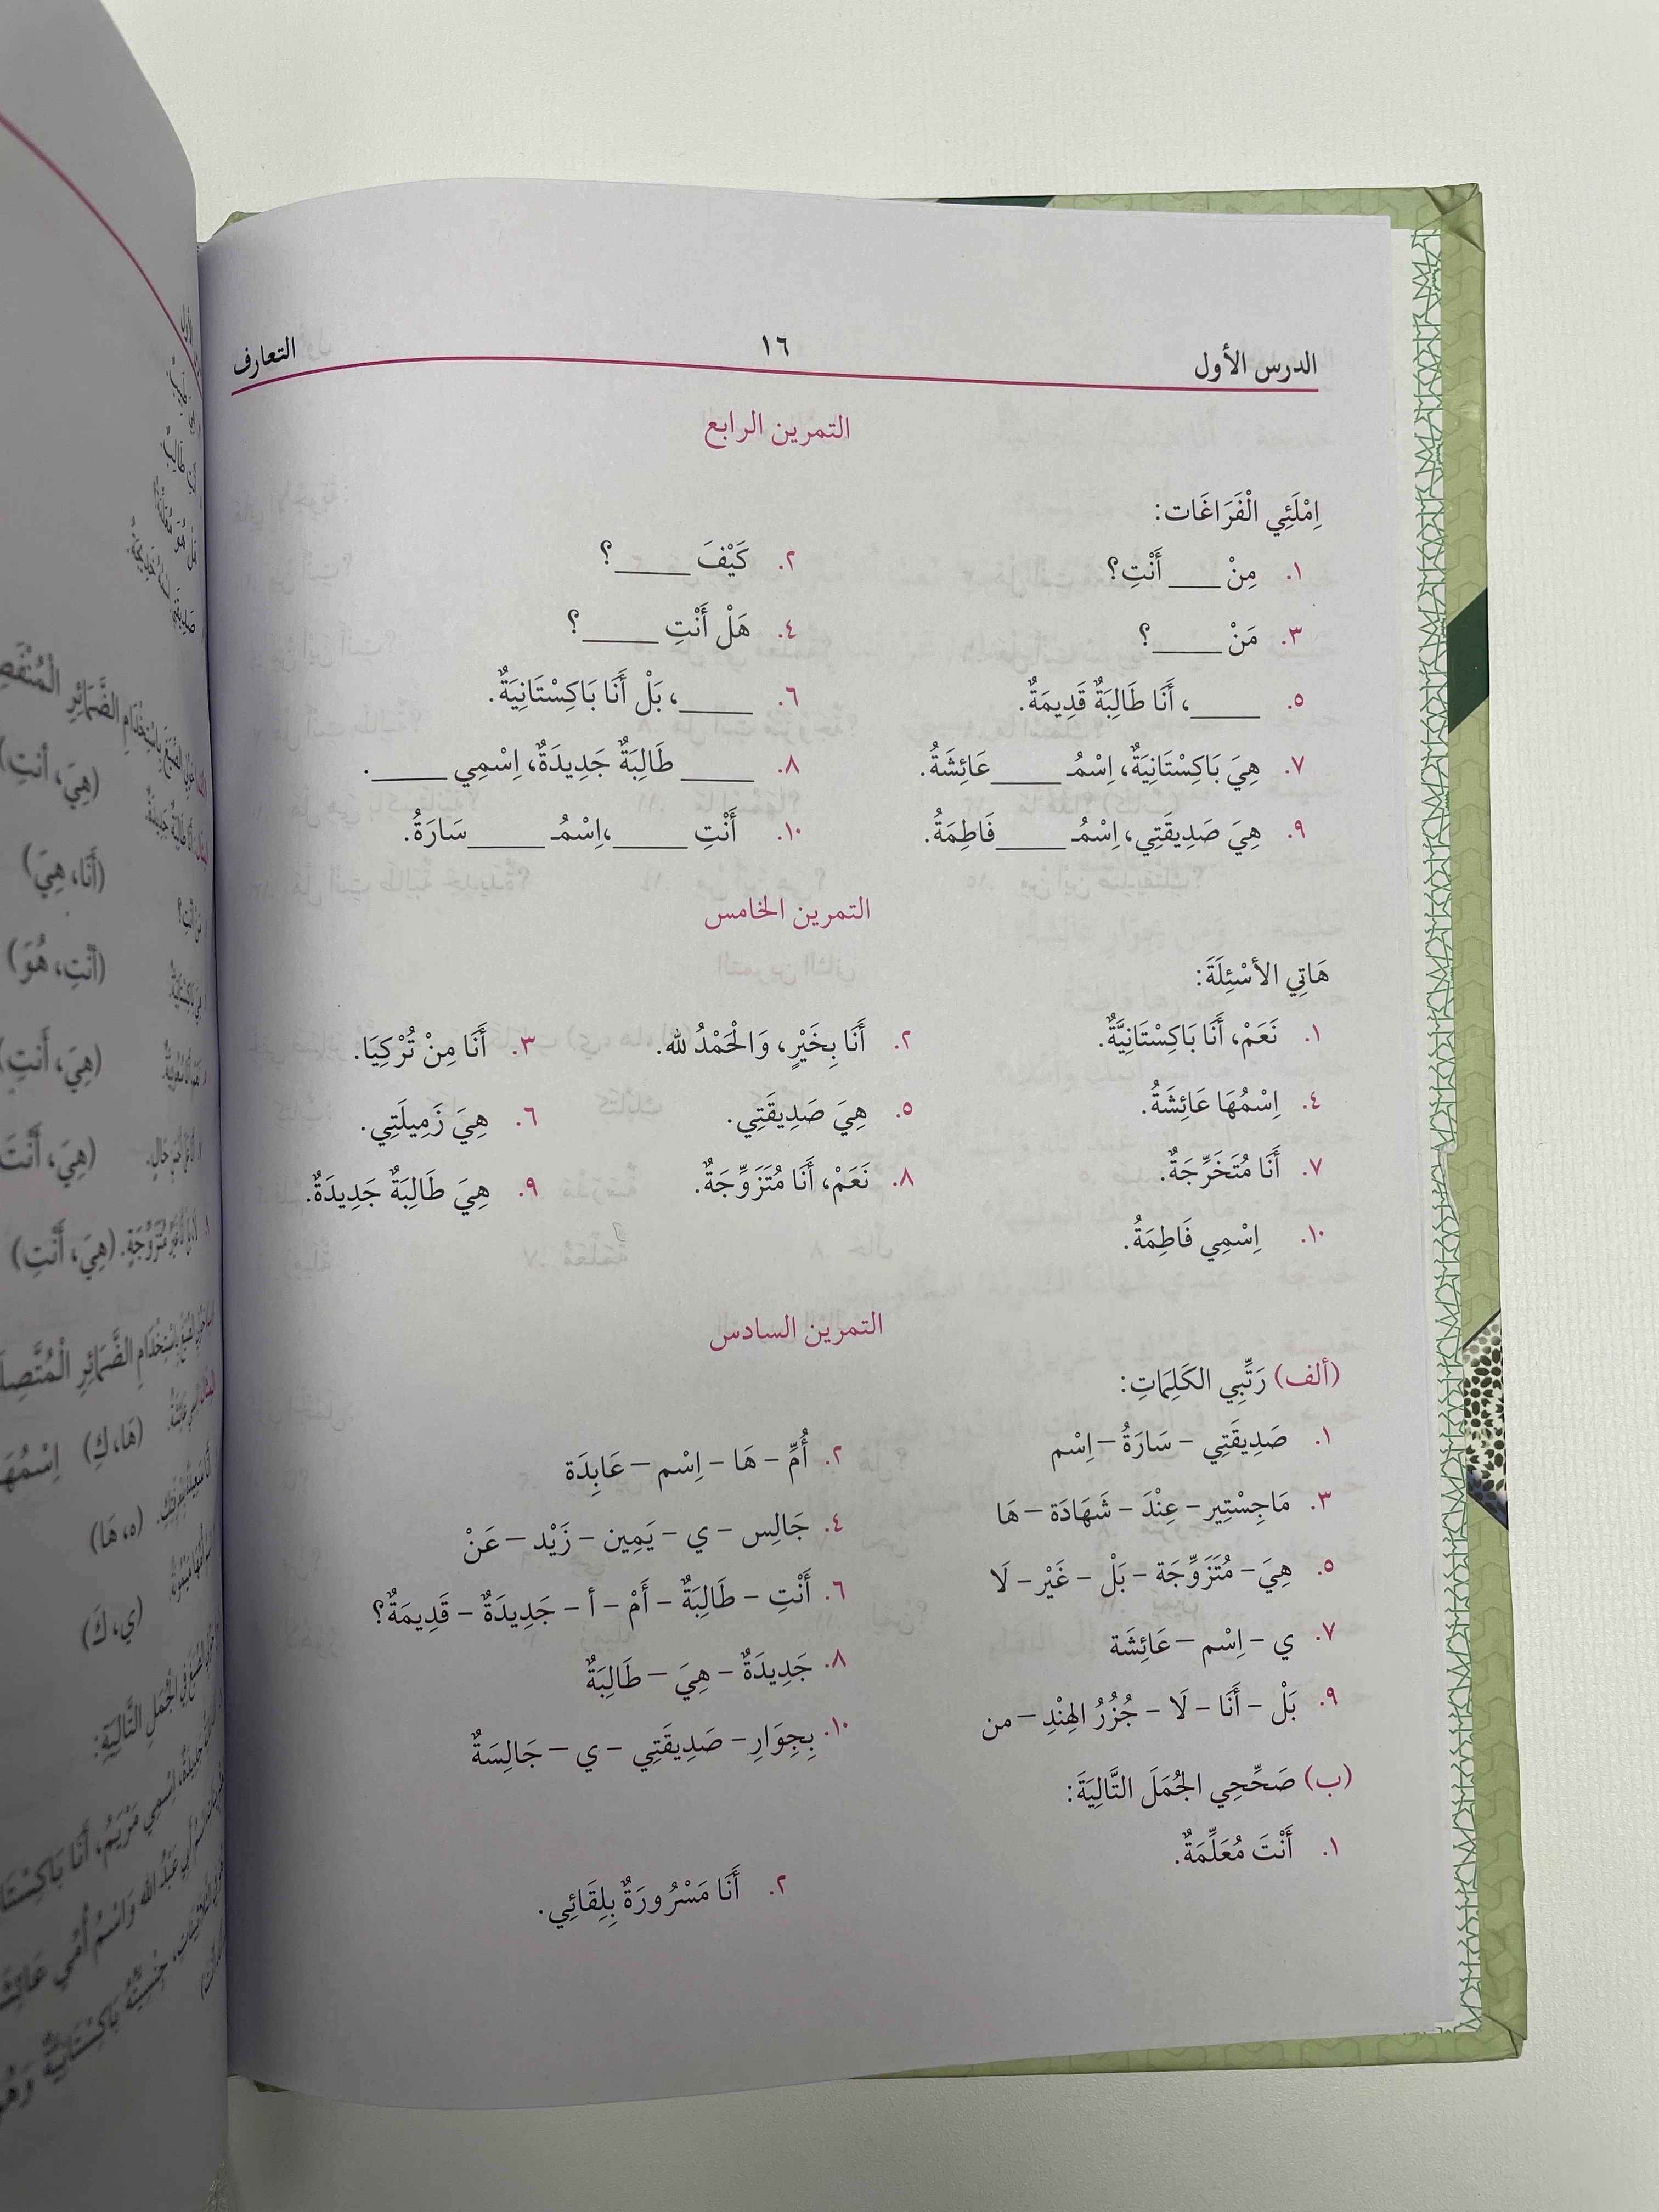 الدرس الأول ١٦ التعارف
التمرين الرابع
اِمْلَئِي الْفَرَاغَات:
١. مِنْ ____ أَنْتِ؟ ٢. كَيْفَ ____؟
٣. مَنْ ____؟ ٤. هَلْ أَنْتِ ____؟
٥. ____، أَنَا طَالِبَةٌ قَدِيمَةٌ. ٦. ____، بَلْ أَنَا بَاكِسْتَانِيَةٌ.
٧. هِيَ بَاكِسْتَانِيَةٌ، اِسْمُـ ____ عَائِشَةُ. ٨. ____ طَالِبَةٌ جَدِيدَةٌ، اِسْمِي ____.
٩. هِيَ صَدِيقَتِي، اِسْمُـ ____ فَاطِمَةُ. ١٠. أَنْتِ ____، اِسْمُـ ____ سَارَةُ.
التمرين الخامس
هَاتِي الأسْئِلَةَ:
١. نَعَمْ، أَنَا بَاكِسْتَانِيَّةٌ. ٢. أَنَا بِخَيْرٍ، وَالْحَمْدُ لله. ٣. أَنَا مِنْ تُرْكِيَا.
٤. اِسْمُهَا عَائِشَةُ. ٥. هِيَ صَدِيقَتِي. ٦. هِيَ زَمِيلَتِي.
٧. أَنَا مُتَخَرِّجَةٌ. ٨. نَعَمْ، أَنَا مُتَزَوِّجَةٌ. ٩. هِيَ طَالِبَةٌ جَدِيدَةٌ.
١٠. اِسْمِي فَاطِمَةُ.
التمرين السادس
(ألف) رَتِّبِي الكَلِمَاتِ:
١. صَدِيقَتِي – سَارَةُ – اِسْم ٢. أُمِّ – هَا – اِسْم – عَابِدَة
٣. مَاجِسْتِير – عِنْدَ – شَهَادَة – هَا ٤. جَالِس – ي – يَمِين – زَيْد – عَنْ
٥. هِيَ – مُتَزَوِّجَة – بَلْ – غَيْر – لَا ٦. أَنْتِ – طَالِبَةٌ – أَمْ – أ – جَدِيدَةٌ – قَدِيمَةٌ؟
٧. ي – اِسْم – عَائِشَة ٨. جَدِيدَةٌ – هِيَ – طَالِبَةٌ
٩. بَلْ – أَنَا – لَا – جُزُرُ الهِنْدِ – من ١٠. بِجِوَارِ – صَدِيقَتِي – ي – جَالِسَةٌ
(ب) صَحِّحِي الجُمَلَ التَّالِيَةَ:
١. أَنْتَ مُعَلِّمَةٌ. ٢. أَنَا مَسْرُورَةٌ بِلِقَائِي.
(هِيَ، أَنتِ)
(أَنَا، هِيَ)
(أَنْتِ، هُوَ)
(هِيَ، أَنتِ)
(هِيَ، أَنْتَ)
(هِيَ، أَنْتِ)
(هَا، كِ)
(ه، هَا)
(ي، كَ)